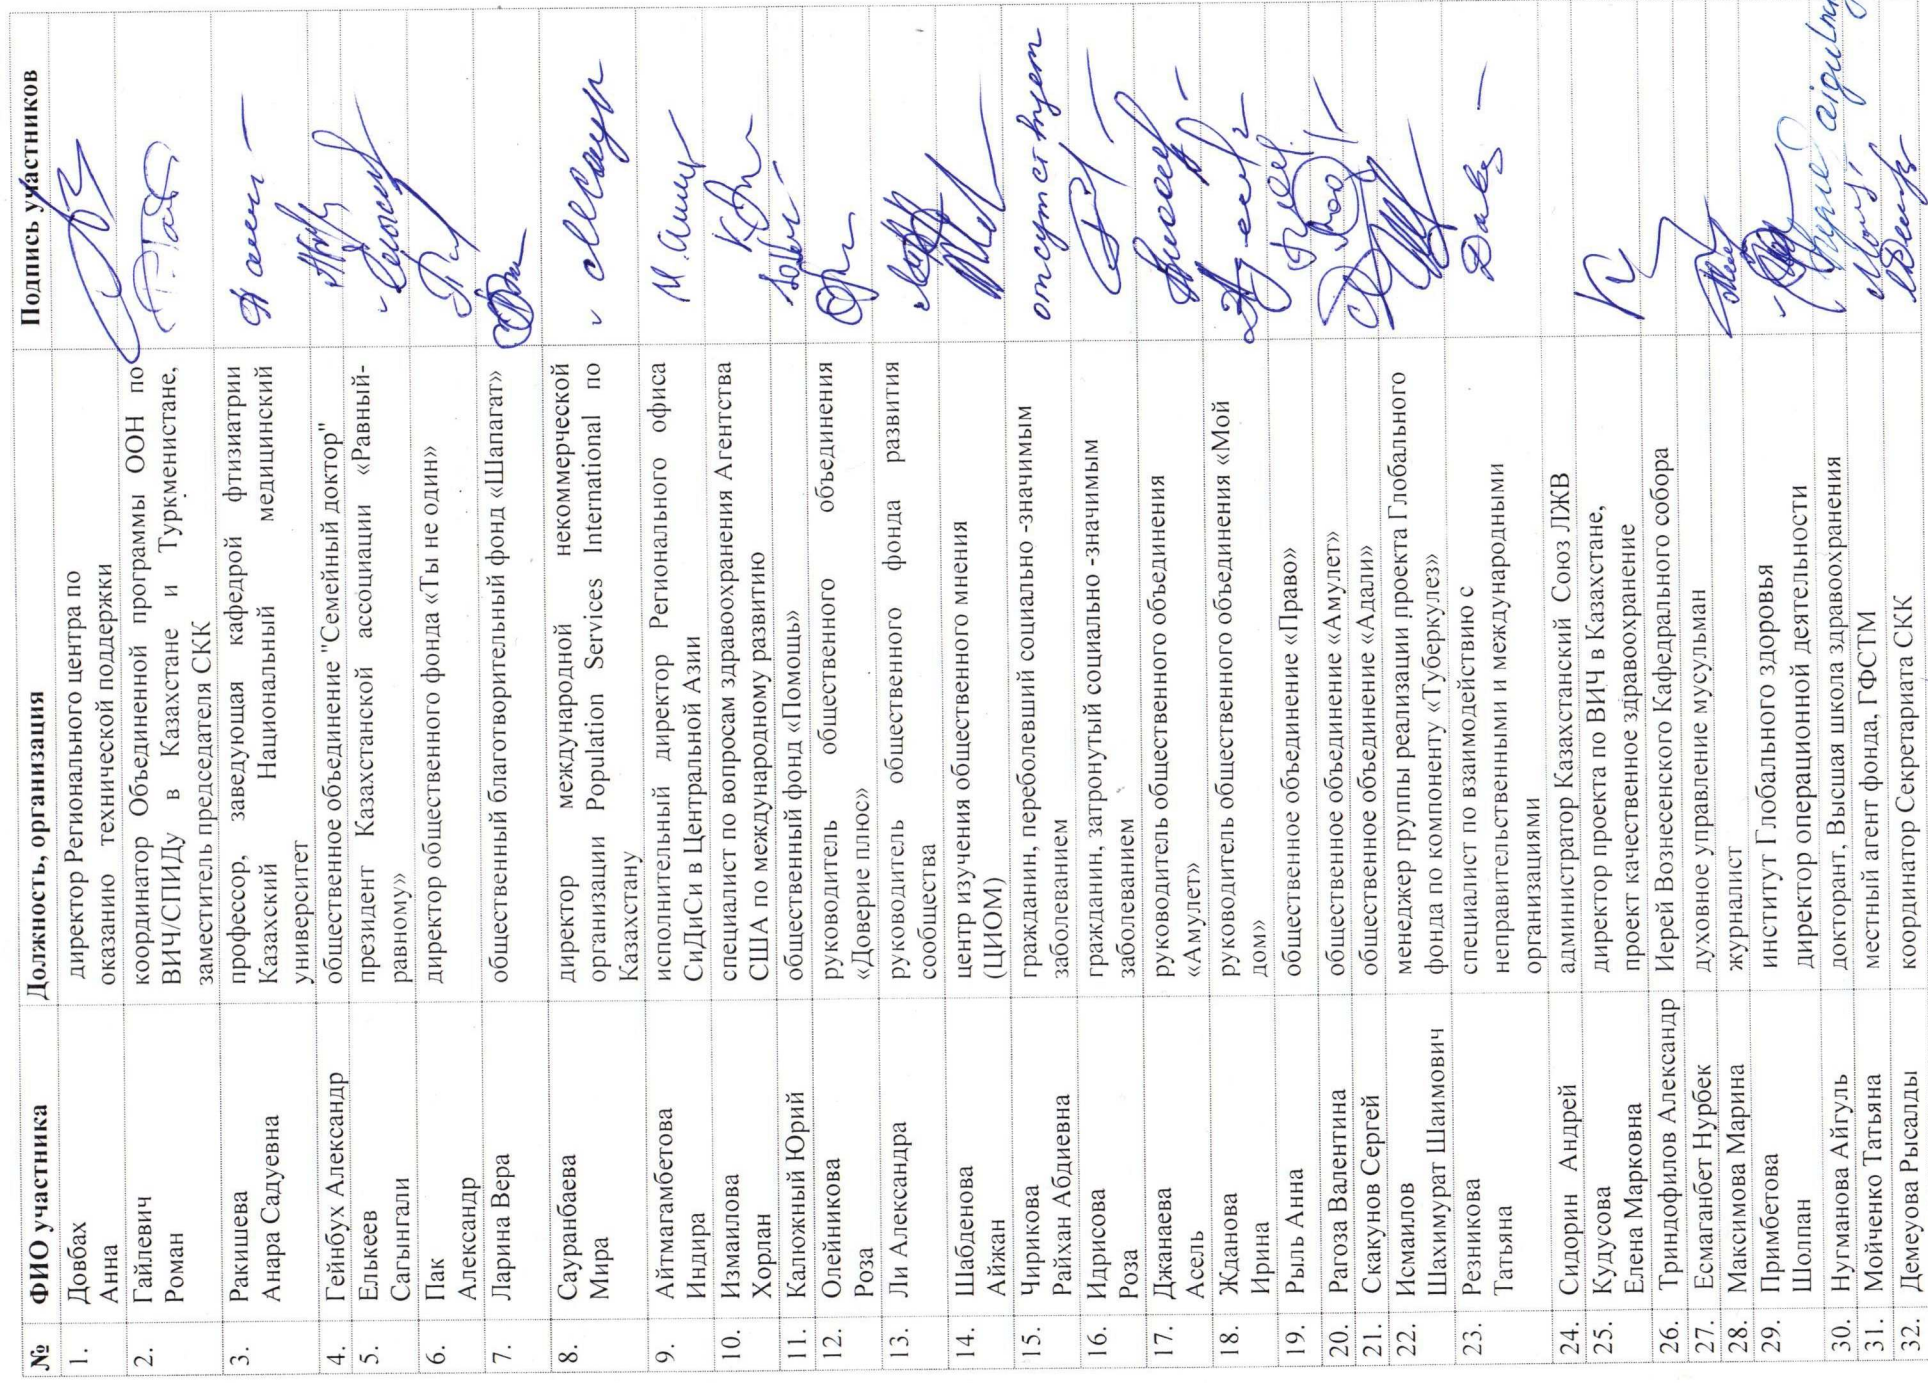 № ФИО участника Должность, организация Подпись участников
1. Довбах директор Регионального центра по
Анна оказанию технической поддержки
2. Гайлевич координатор Объединенной программы ООН по
Роман ВИЧ/СПИДу в Казахстане и Туркменистане,
заместитель председателя СКК
3. Ракишева профессор, заведующая кафедрой фтизиатрии
Анара Садуевна Казахский Национальный медицинский
университет
4. Гейнбух Александр общественное объединение "Семейный доктор"
5. Елькеев президент Казахстанской ассоциации «Равный-
Сагынгали равному»
6. Пак директор общественного фонда «Ты не один»
Александр
7. Ларина Вера общественный благотворительный фонд «Шапагат»
8. Сауранбаева директор международной некоммерческой
Мира организации Population Services International по
Казахстану
9. Айтмагамбетова исполнительный директор Регионального офиса
Индира СиДиСи в Центральной Азии
10. Измаилова специалист по вопросам здравоохранения Агентства
Хорлан США по международному развитию
11. Калюжный Юрий общественный фонд «Помощь»
12. Олейникова руководитель общественного объединения
Роза «Доверие плюс»
13. Ли Александра руководитель общественного фонда развития
сообщества
14. Шабденова центр изучения общественного мнения
Айжан (ЦИОМ)
15. Чирикова гражданин, переболевший социально -значимым отсутствует
Райхан Абдиевна заболеванием
16. Идрисова гражданин, затронутый социально -значимым
Роза заболеванием
17. Джанаева руководитель общественного объединения
Асель «Амулет»
18. Жданова руководитель общественного объединения «Мой
Ирина дом»
19. Рыль Анна общественное объединение «Право»
20. Рагоза Валентина общественное объединение «Амулет»
21. Скакунов Сергей общественное объединение «Адали»
22. Исмаилов менеджер группы реализации проекта Глобального
Шахимурат Шаимович фонда по компоненту «Туберкулез»
23. Резникова специалист по взаимодействию с
Татьяна неправительственными и международными
организациями
24. Сидорин Андрей администратор Казахстанский Союз ЛЖВ
25. Кудусова директор проекта по ВИЧ в Казахстане,
Елена Марковна проект качественное здравоохранение
26. Триндофилов Александр Иерей Вознесенского Кафедрального собора
27. Есмаганбет Нурбек духовное управление мусульман
28. Максимова Марина журналист
29. Примбетова институт Глобального здоровья
Шолпан директор операционной деятельности
30. Нугманова Айгуль докторант, Высшая школа здравоохранения
31. Мойченко Татьяна местный агент фонда, ГФСТМ
32. Демуова Рысалды координатор Секретариата СКК